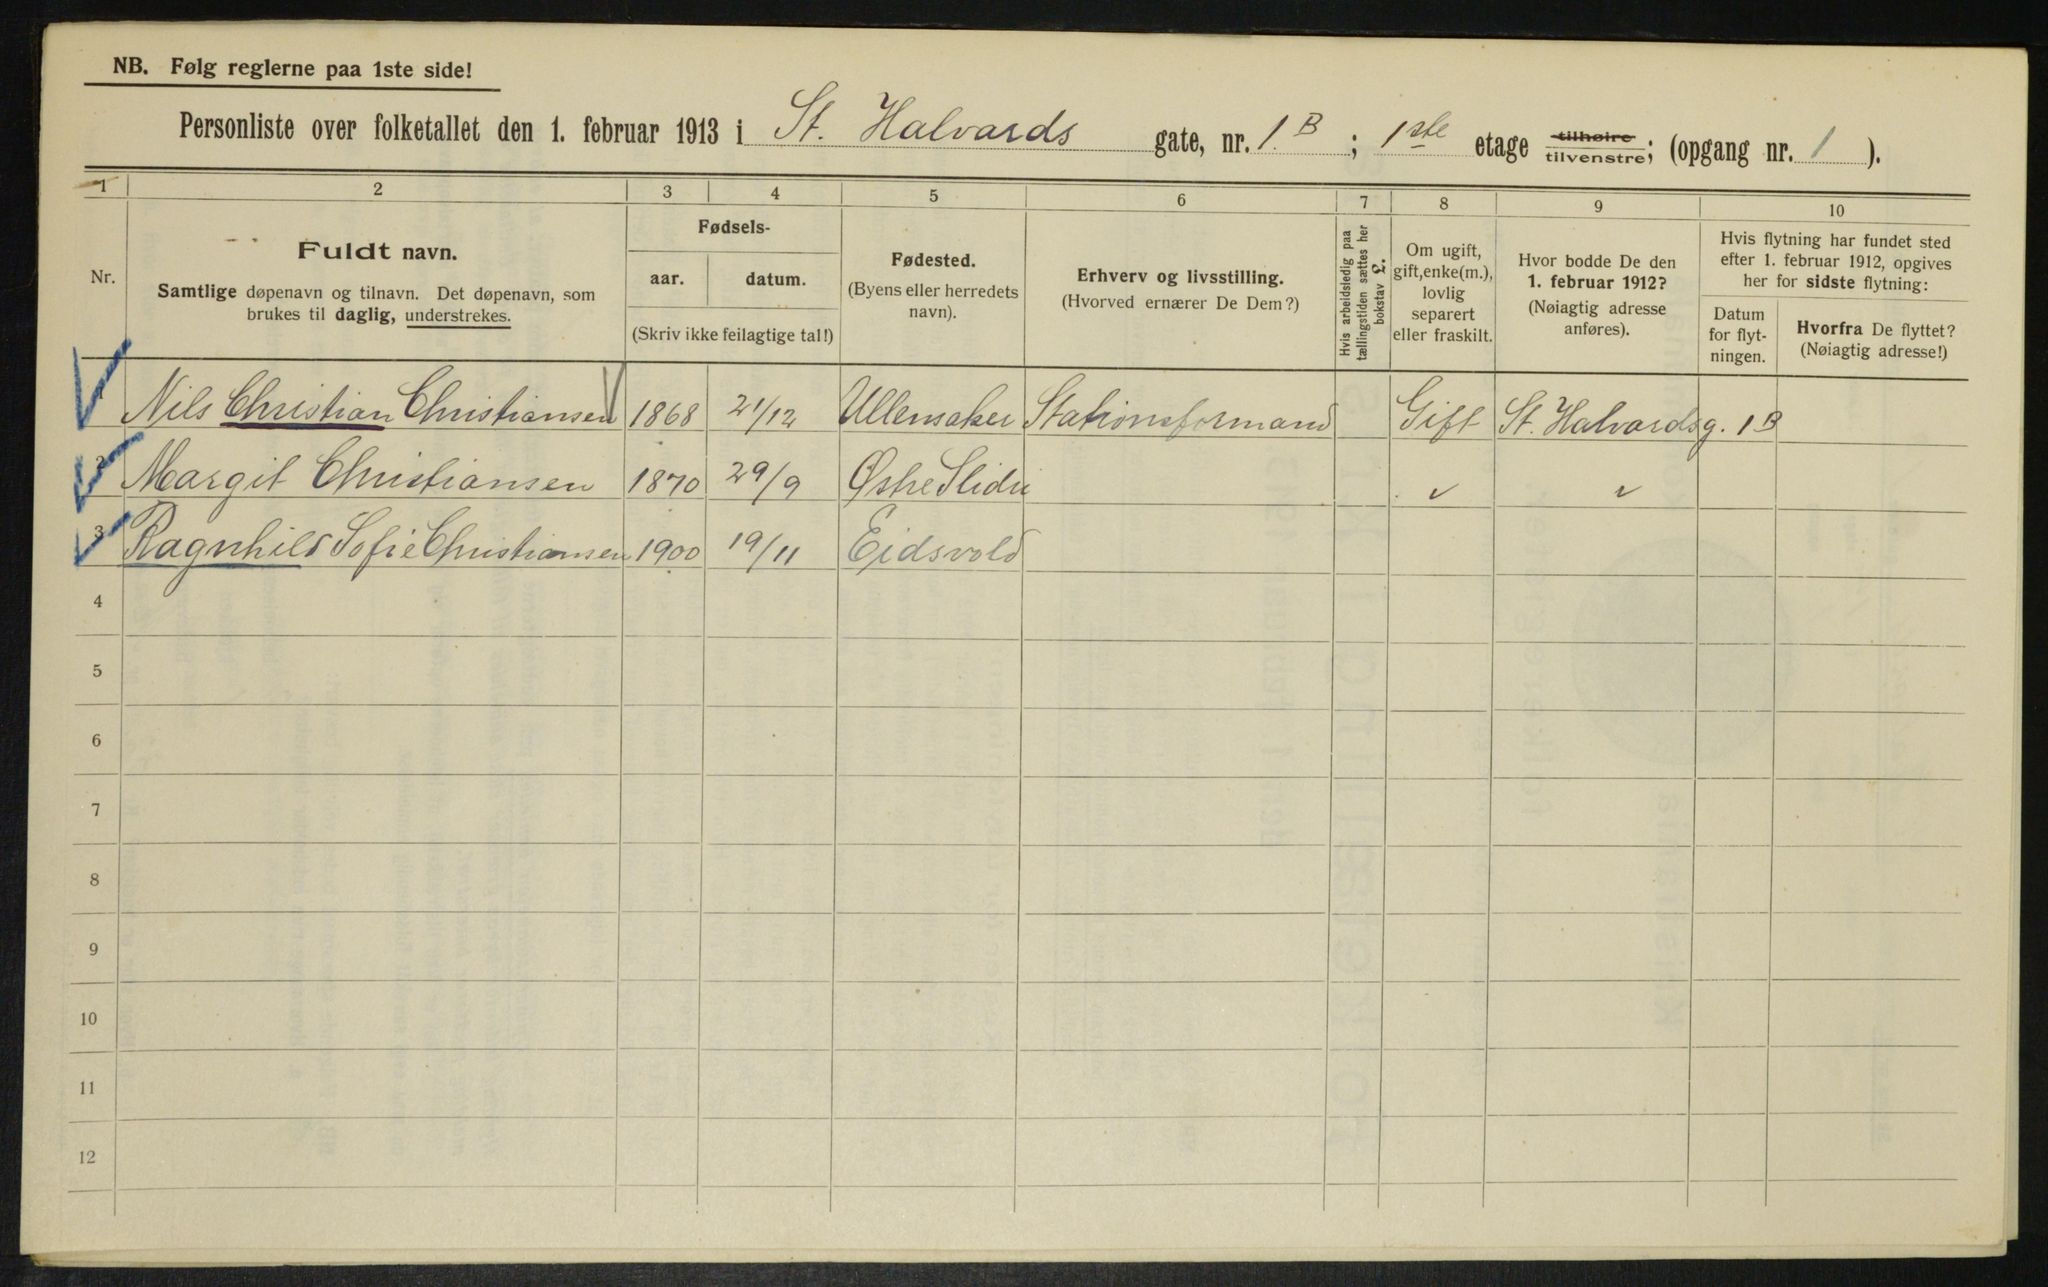 NB. Følg reglerne paa 1ste side!
Personliste over folketallet den 1. februar 1913 i St. Halvards gate, nr. 1 B; 1ste etage tilhøire tilvenstre; (opgang nr. 1).
1 2 3 4 5 6 7 8 9 10
Nr.
Fuldt navn.
Samtlige døpenavn og tilnavn. Det døpenavn, som
brukes til daglig, understrekes.
Fødsels-
aar. datum.
(Skriv ikke feilagtige tal!)
Fødested.
(Byens eller herredets
navn).
Erhverv og livsstilling.
(Hvorved ernærer De Dem?)
Hvis arbeidsledig paa
tællingstiden sættes her
bokstav L.
Om ugift,
gift, enke(m.),
lovlig
separert
eller fraskilt.
Hvor bodde De den
1. februar 1912?
(Nøiagtig adresse
anføres).
Hvis flytning har fundet sted
efter 1. februar 1912, opgives
her for sidste flytning:
Datum
for flyt-
ningen.
Hvorfra De flyttet?
(Nøiagtig adresse!)
Nils Christian Christiansen 1868 21/12 Ullensaker Stationsformand Gift St. Halvardsg. 1 B
2 Margit Christiansen 1870 29/9 Østre Slidre " "
3 Ragnhild Sofie Christiansen 1900 19/11 Eidsvold
4
5
6
7
8
9
10
11
12